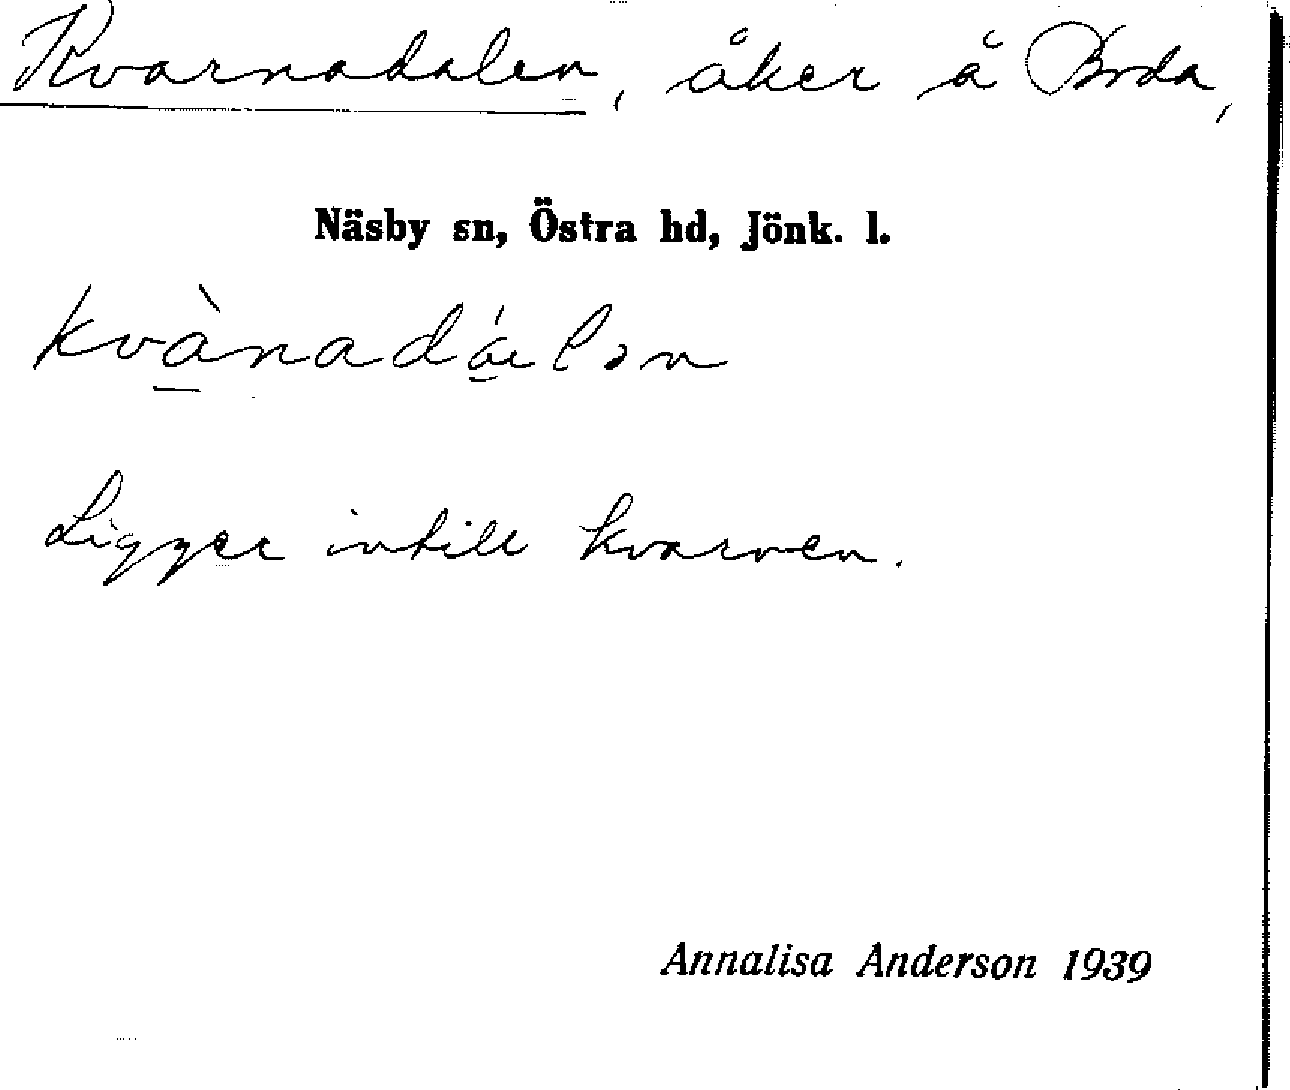 Kvarnadalen, åker å Boda,
Näsby sn, Östra hd, Jönk. l.
kvànadálən
Ligger intill kvarnen.
Annalisa Anderson 1939